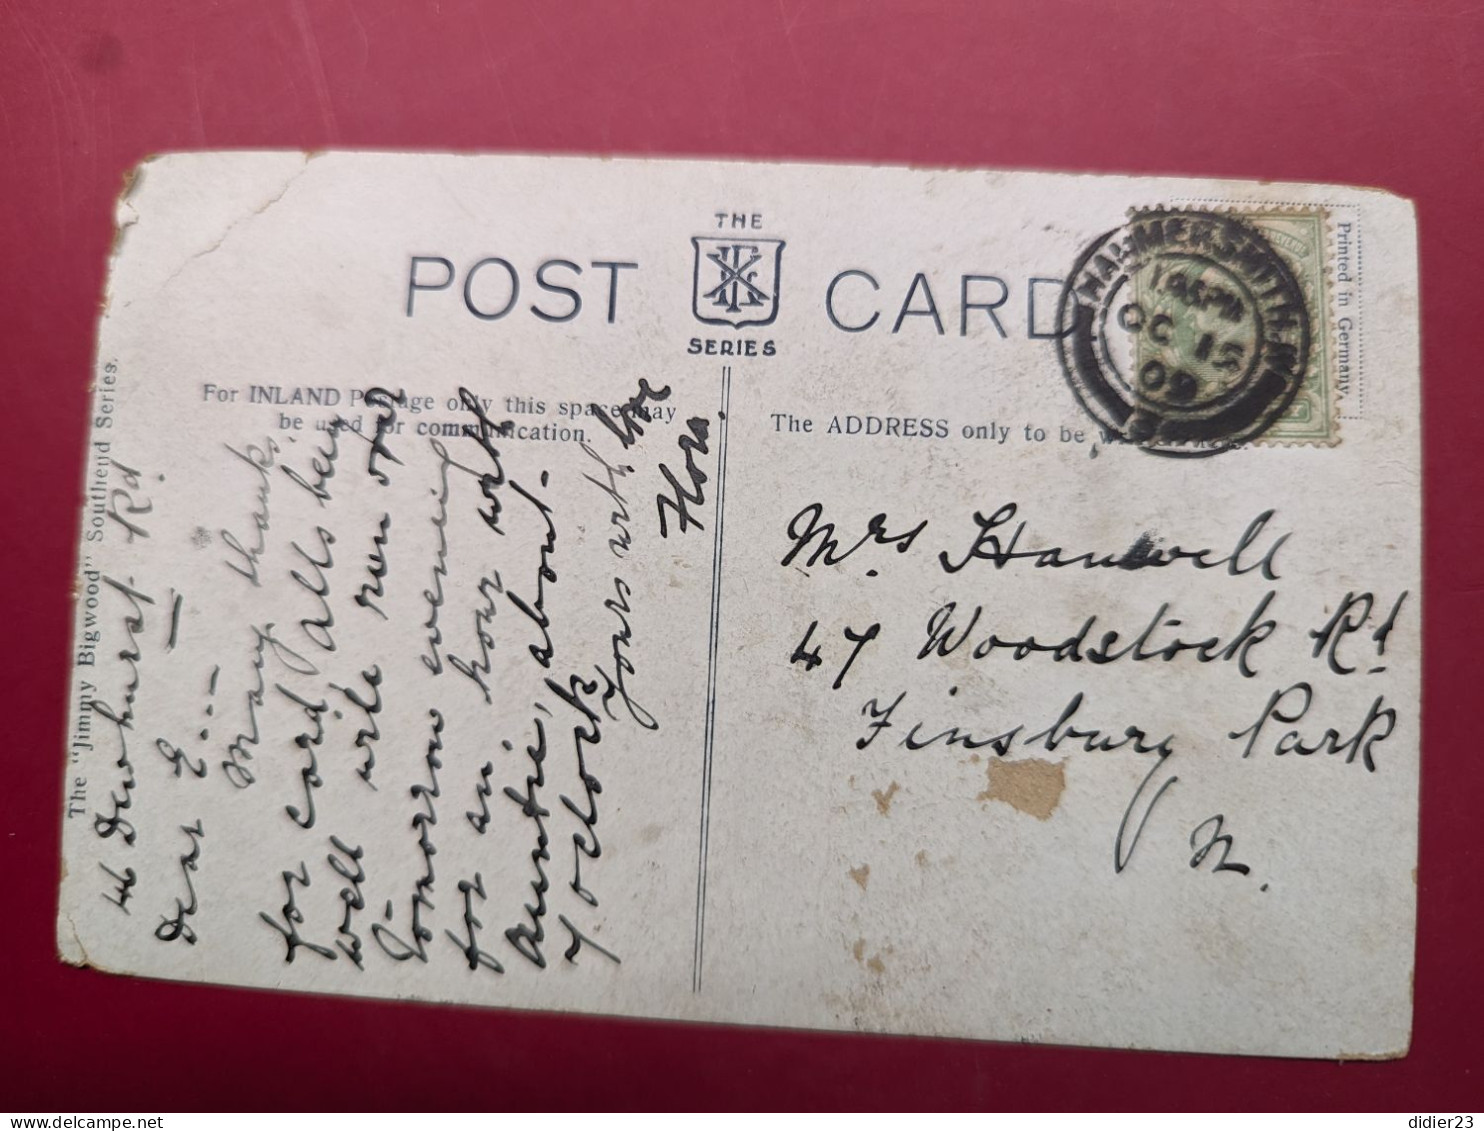 THE
POST CARD
SERIES
For INLAND Postage only this space may
be used for communication.
The ADDRESS only to be
Printed in Germany.
The "Jimmy Bigwood" Southend Series.
HAMMERSMITH.W
OC 15
09
46 Dewhurst Rd
Dear E....
Many thanks
for card, alls being
well will run over
Tomorrow evening
for an hour with
Auntie, about-
7 oclock
Yours with love
Flora.
Mrs Hanwell
47 Woodstock Rd
Finsbury Park
N.
didier23